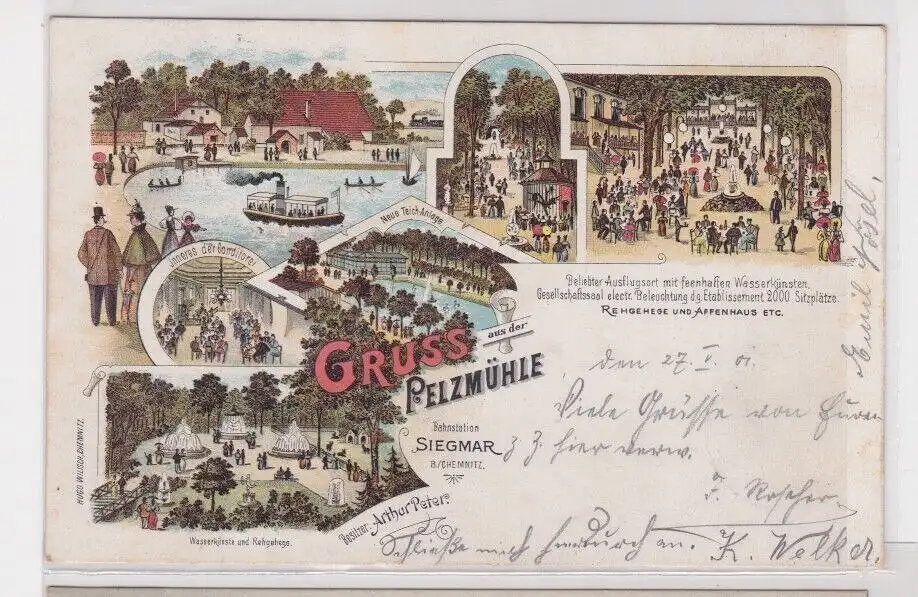 Neue Teich-Anlage
Inneres der Conditorei
Beliebter Ausflugsort mit feenhaften Wasserkünsten,
Gesellschaftssaal electr. Beleuchtung dg. Etablissement 2000 Sitzplätze.
REHGEHEGE UND AFFENHAUS ETC.
GRUSS aus der
PELZMÜHLE
Bahnstation
SIEGMAR
B/CHEMNITZ.
Besitzer: Arthur Peter.
Wasserkünste und Rehgehege.
HUGO WILISCH, CHEMNITZ
den 27. V. 01.
Viele Grüsse von Euren
z. Z. hier verw.
F. Roscher
Schließe mich hierdurch an. K. Welker.
Emil